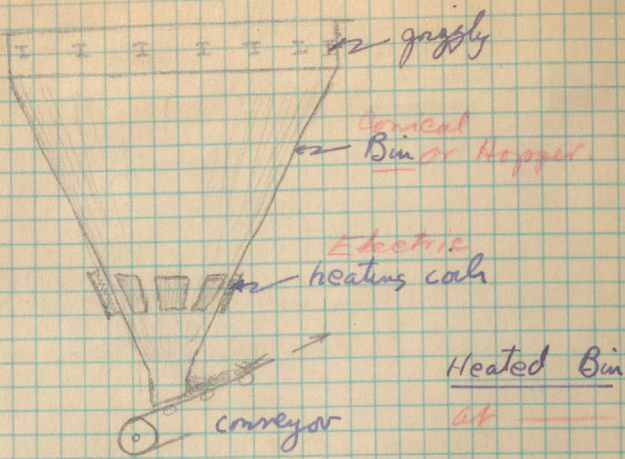 grizzly
Conical
Bin or Hopper.
Electric
heating coils
Heated Bin
at
conveyor